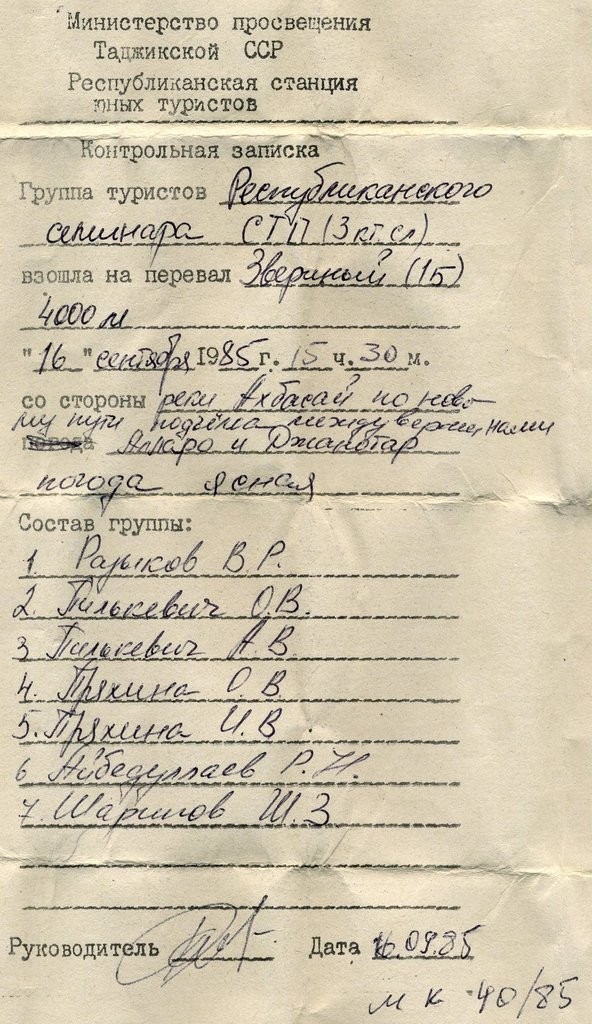 Министерство просвещения
Таджикской ССР
Республиканская станция
юных туристов
Контрольная записка
Группа туристов Республиканского
семинара СТП (3 кт сл)
взошла на перевал Звериный (1Б)
4000 м
"16" сентября 1985 г. 15 ч. 30 м.
со стороны реки Ахбасай по ново-
му пути подъёма между вершинами
погода Алларо и Джамотар
погода ясная
Состав группы:
1. Разыков В.Р.
2. Пилькевич О.В.
3 Пилькевич А.В.
4. Пряхина О.В.
5. Пряхина И.В.
6 Айбедуллаев Р.Н.
7. Шарипов Ш.З
Руководитель Дата 16.09.85
МК 40/85